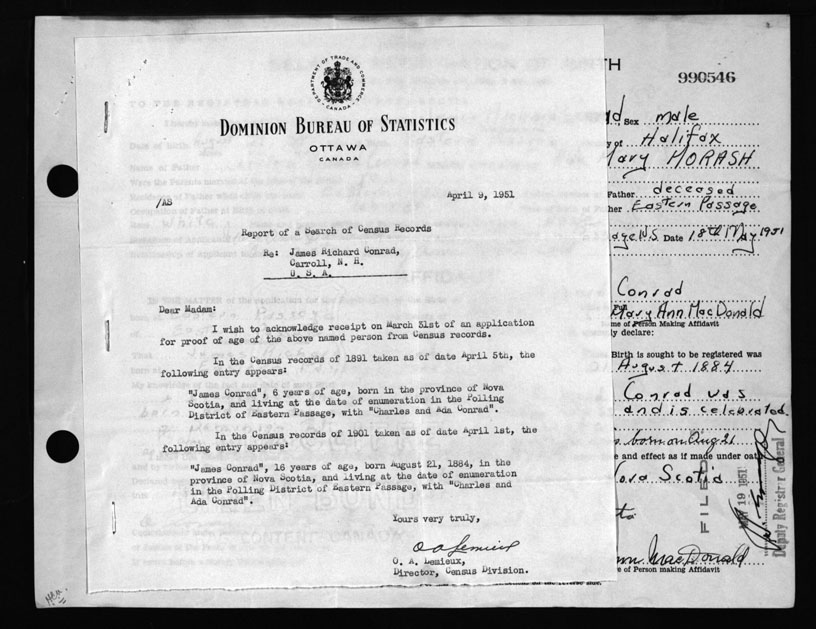 DEPARTMENT OF TRADE AND COMMERCE
CANADA
DOMINION BUREAU OF STATISTICS
OTTAWA
CANADA
/AS
April 9, 1951
Report of a Search of Census Records
Re: James Richard Conrad,
Carroll, N. H.
U. S. A.
Dear Madam:
I wish to acknowledge receipt on March 31st of an application
for proof of age of the above named person from Census records.
In the Census records of 1891 taken as of date April 5th, the
following entry appears:
"James Conrad", 6 years of age, born in the province of Nova
Scotia, and living at the date of enumeration in the Polling
District of Eastern Passage, with "Charles and Ada Conrad".
In the Census records of 1901 taken as of date April 1st, the
following entry appears:
"James Conrad", 16 years of age, born August 21, 1884, in the
province of Nova Scotia, and living at the date of enumeration
in the Polling District of Eastern Passage, with "Charles and
Ada Conrad".
Yours very truly,
O A Lemieux
O. A. Lemieux,
Director, Census Division.
TH
990546
Sex male
of Halifax
Mary HORASH
Father deceased
Eastern Passage
N.S. Date 18th May 1951
Conrad
Full
Mary Ann MacDonald
Name of Person Making Affidavit
declare:
Birth is sought to be registered was
August 1884
Conrad was
and is celebrated
Aug 21
and effect as if made under oath
Nova Scotia
FILED
MAY 19 1951
Deputy Registrar General
Ann MacDonald
of Person making Affidavit